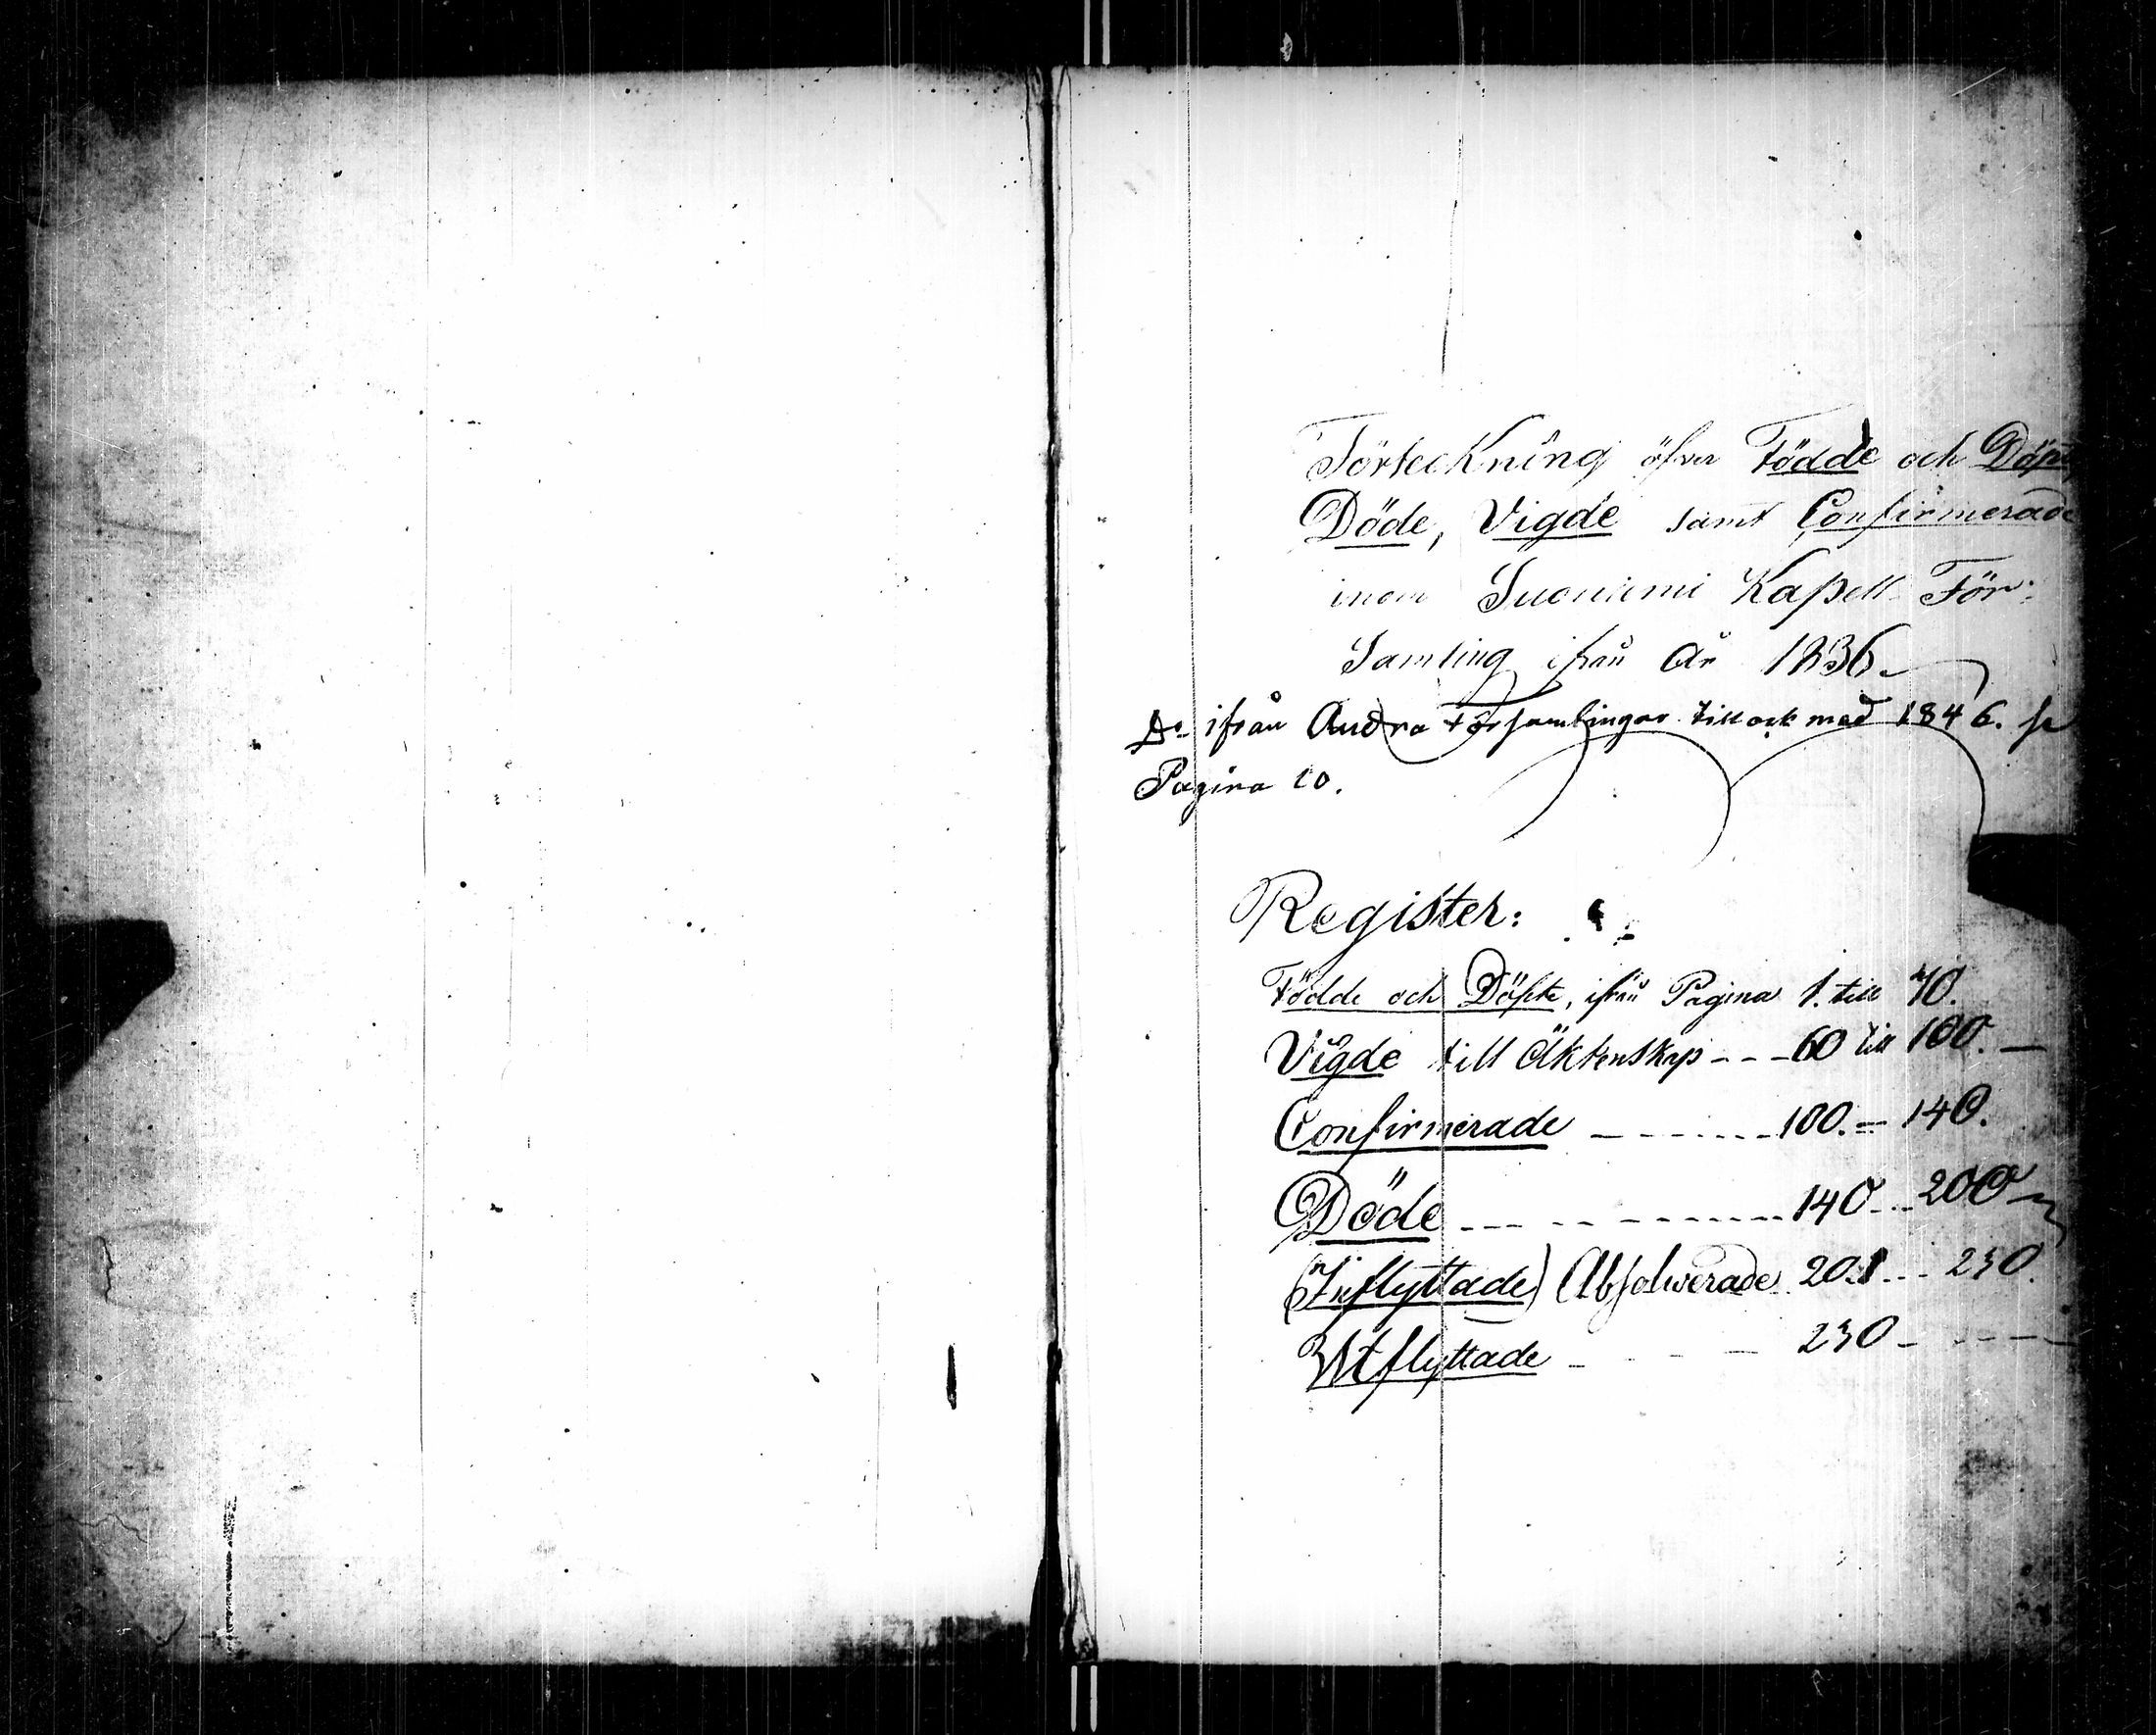 Förteckning öfver Födde och Döpte,
Döde, Vigde samt Confirmerade
inom Suoniemi Kapell För:
Samling ifrån År 1836.
Do ifrån Andra Församlingar till ock med 1846. se
Pagina 20.
Register:
Födde och Döpte, ifrån Pagina 1. till 40.
Vigde till Äktenskap - - - 60 till 100. -
Confirmerade - - - - - - - 100. = 140.
Döde - - - - - - - - - - 140 - - - 200
(Inflyttade) Absolverade 201 - - - 230.
Utflyttade - - - - 230 - - - - -